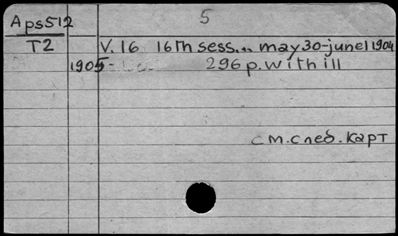 Aps512 5
T2 V. 16 16th sess... may 30-june 1 1904
1905- 296 p. with ill
см. след. карт